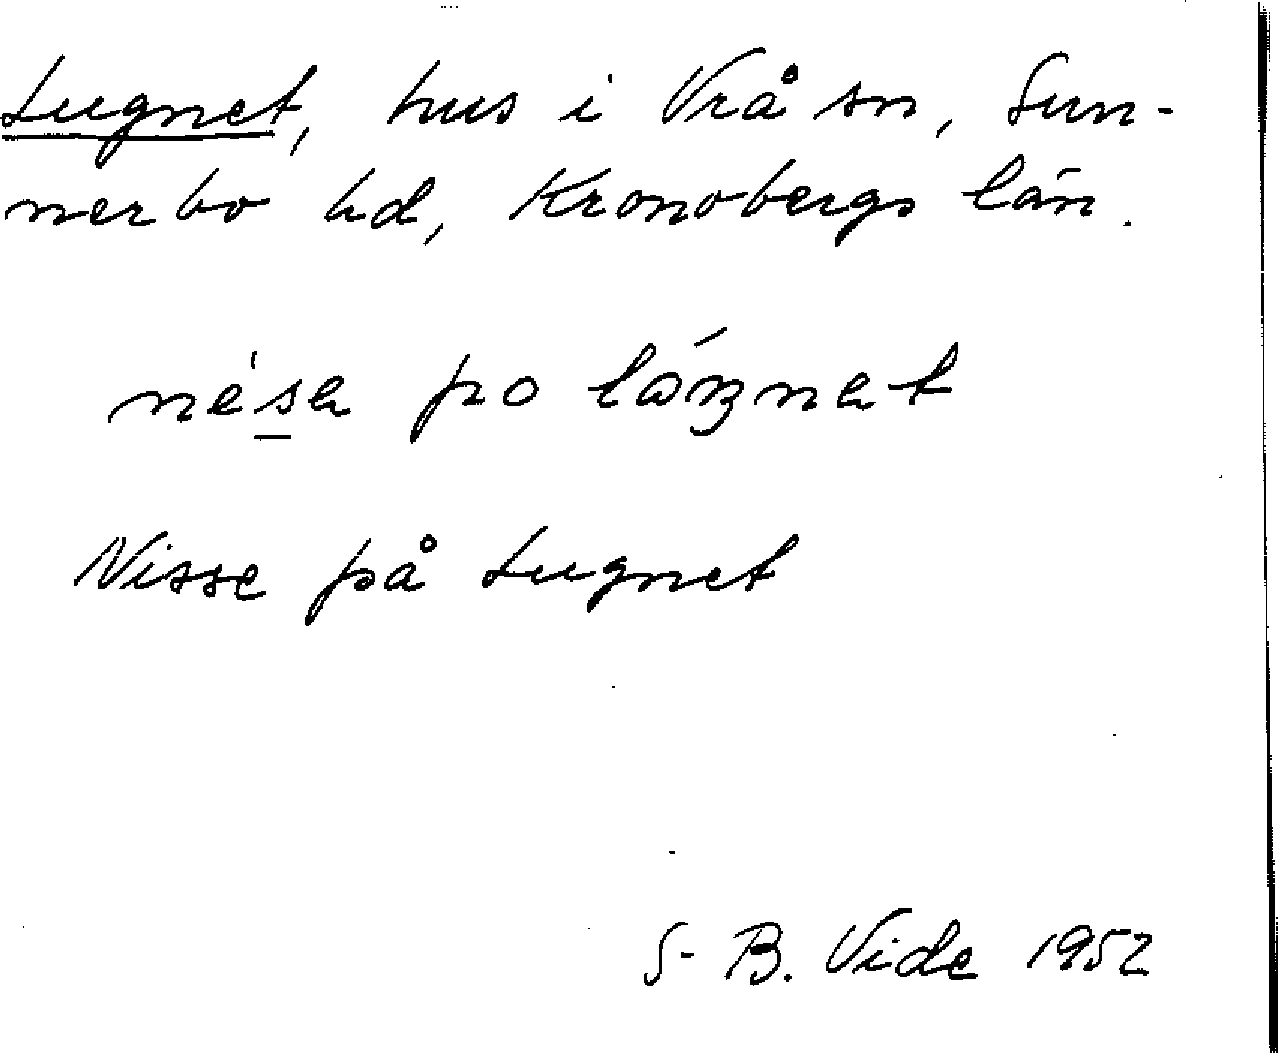 Lugnet, hus i Vrå sn, Sun-
nerbo hd, Kronobergs län.
po
Nisse på Lugnet
S-B. Vide 1952